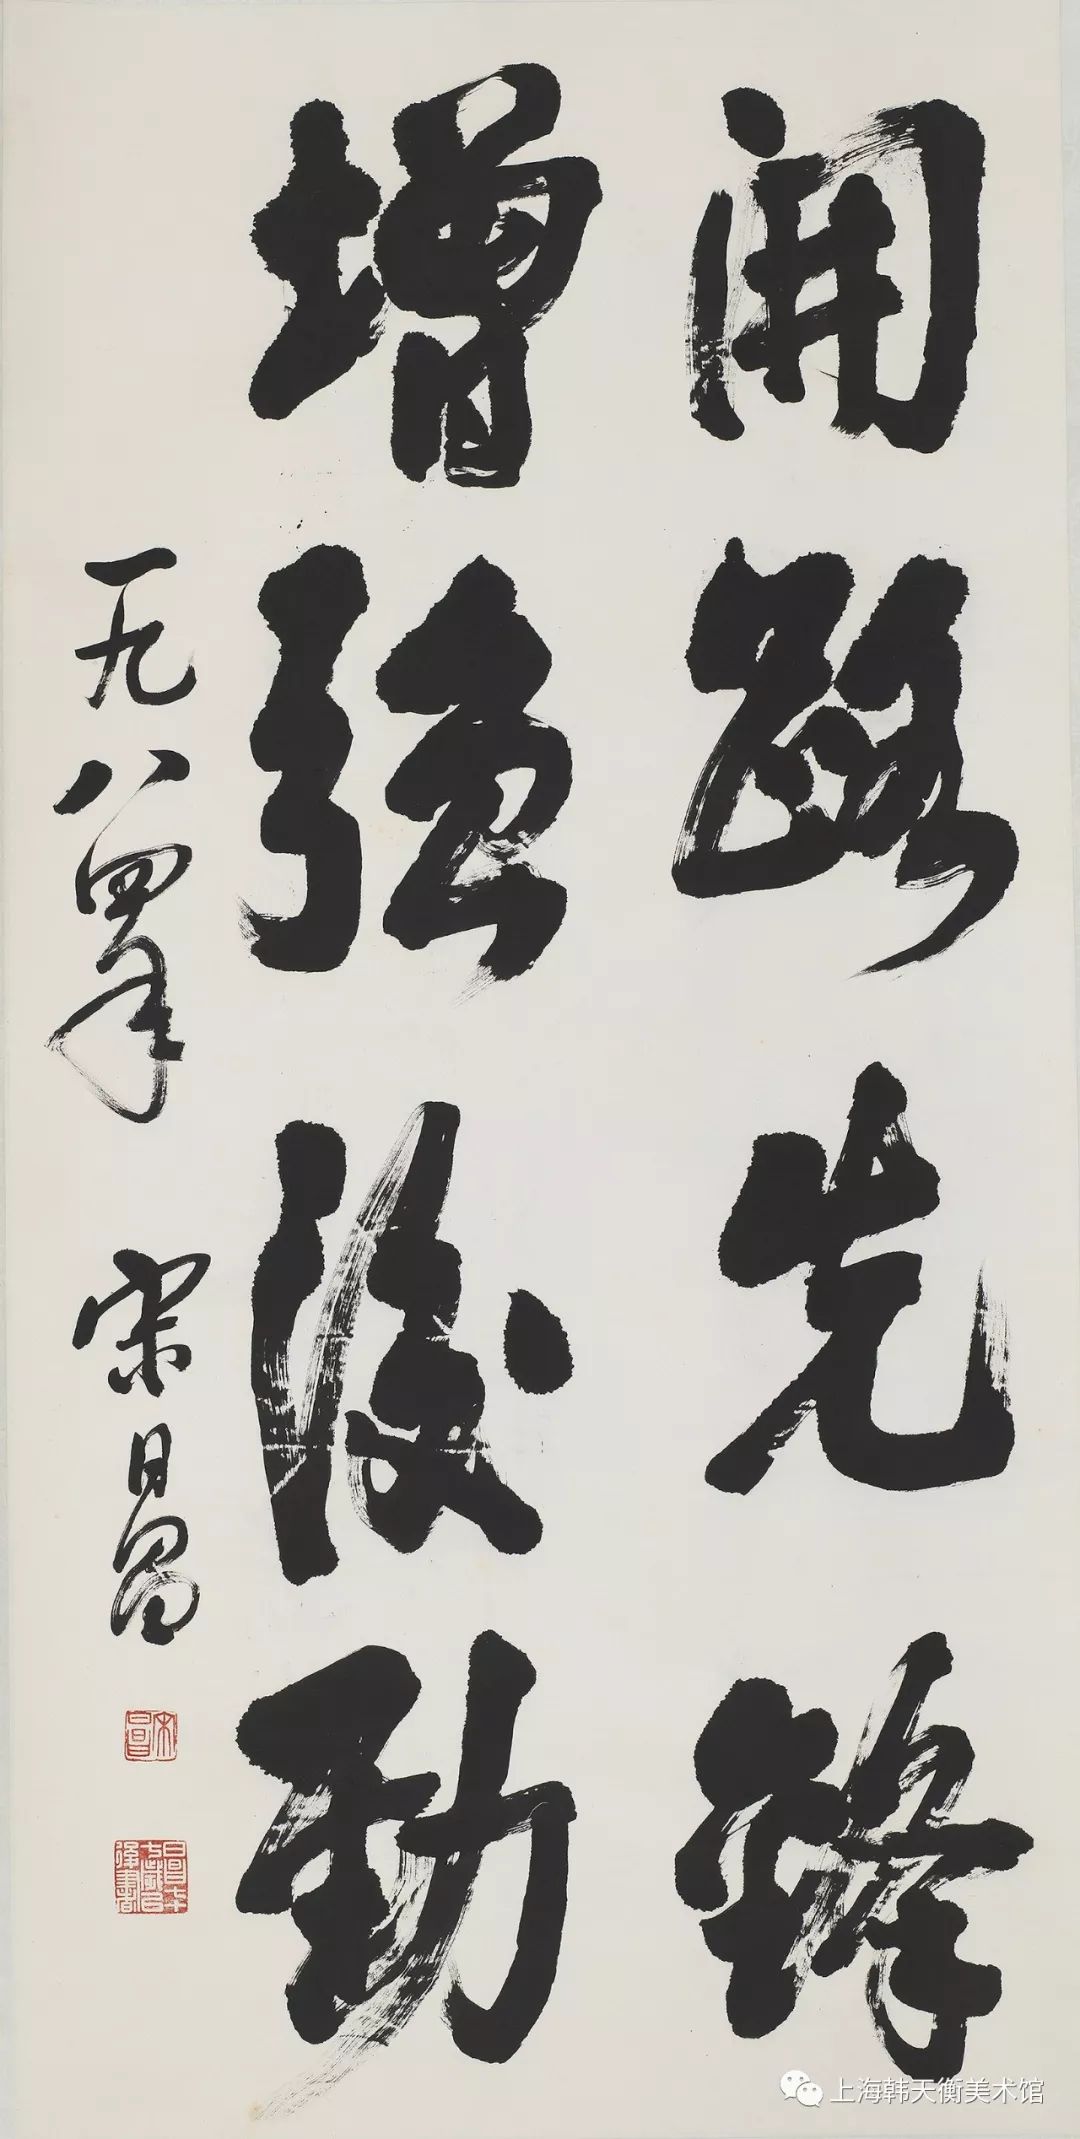 開路先鋒
增強後勁
一九八四年 宋日昌
宋日昌
上海韩天衡美术馆